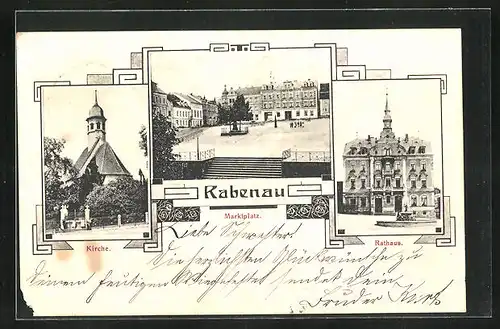 Rabenau
Marktplatz.
Kirche.
Rathaus.
Liebe Schwester!
Die herzlichsten Glückwünsche zu
Deinem heutigen Wiegenfeste sendet Dein
Bruder